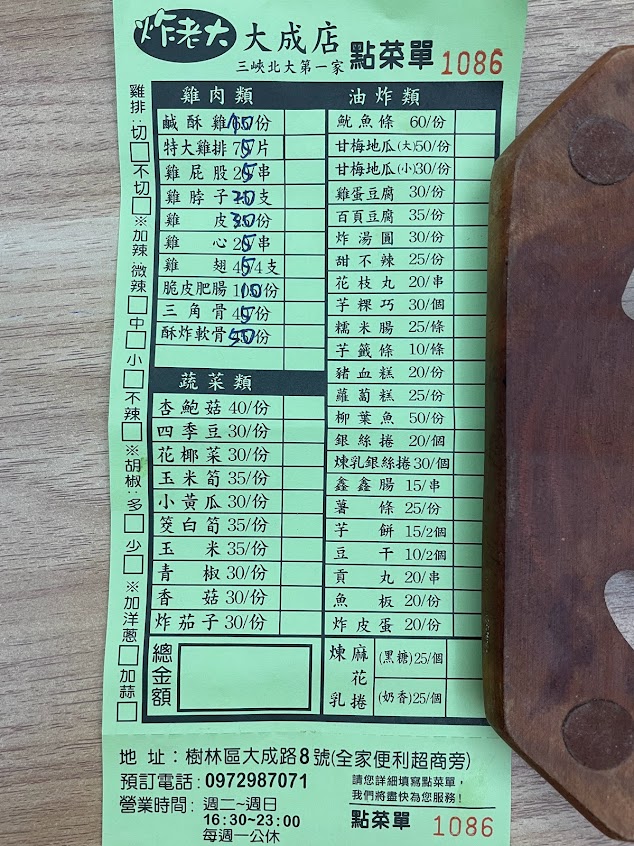 炸老大 大成店
三峽北大第一家
點菜單 1086
雞排：切□不切□※加辣：微辣□中□小□不辣□※胡椒：多□少□※加洋蔥□加蒜□
雞肉類
鹹酥雞 /份
特大雞排 75/片
雞屁股 25/串
雞脖子 20/支
雞皮 30/份
雞心 25/串
雞翅 45/4支
脆皮肥腸 110/份
三角骨 45/份
酥炸軟骨 50/份
蔬菜類
杏鮑菇 40/份
四季豆 30/份
花椰菜 30/份
玉米筍 35/份
小黃瓜 30/份
筊白筍 35/份
玉米 35/份
青椒 30/份
香菇 30/份
炸茄子 30/份
總金額
油炸類
魷魚條 60/份
甘梅地瓜(大)50/份
甘梅地瓜(小)30/份
雞蛋豆腐 30/份
百頁豆腐 35/份
炸湯圓 30/份
甜不辣 25/份
花枝丸 20/串
芋粿巧 30/個
糯米腸 25/條
芋籤條 10/條
豬血糕 20/份
蘿蔔糕 25/份
柳葉魚 50/份
銀絲捲 20/個
煉乳銀絲捲 30/個
鑫鑫腸 15/串
薯條 25/份
芋餅 15/2個
豆干 10/2個
貢丸 20/串
魚板 20/份
炸皮蛋 20/份
煉乳麻花捲
(黑糖)25/個
(奶香)25/個
地址：樹林區大成路8號(全家便利超商旁)
預訂電話：0972987071
營業時間：週二~週日
16:30~23:00
每週一公休
請您詳細填寫點菜單，
我們將盡快為您服務！
點菜單 1086